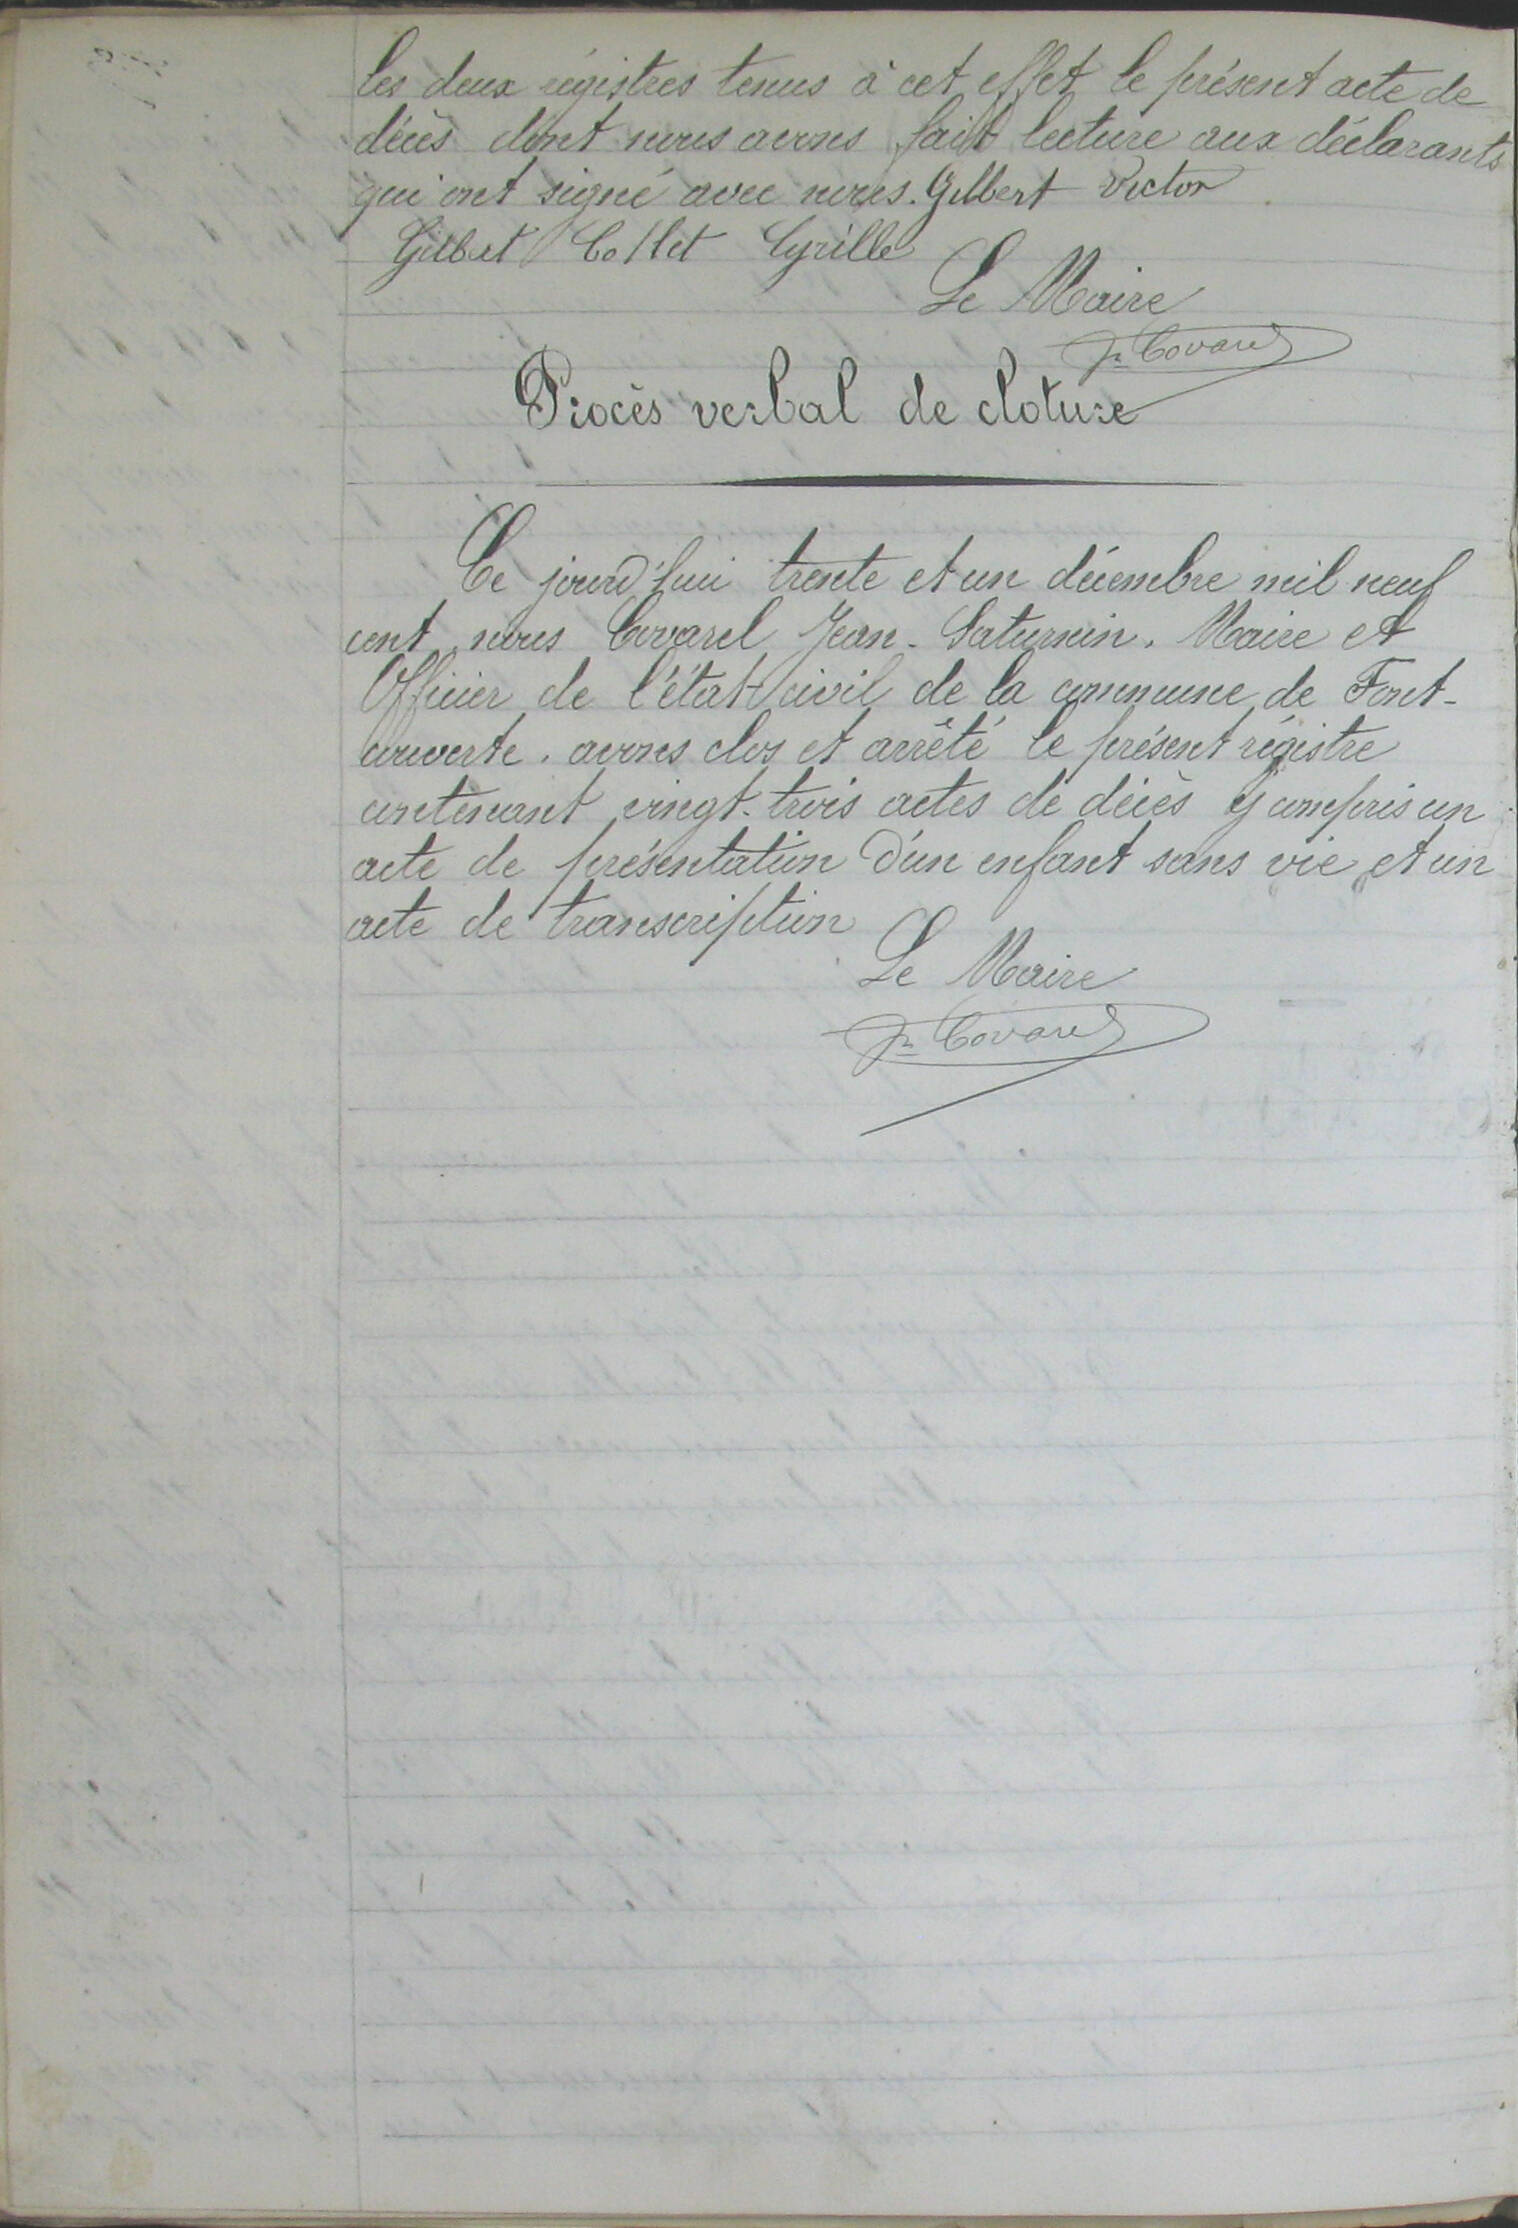 les deux régistres tenus à cet effet le présent acte de
décès dont nous avons fait lecture aux déclarants
qui ont signé avec nous. Gilbert Victor
Gilbert Collet Cyrille
Le Maire
Jn Covarel
Procès verbal de cloture
Ce jourd'hui trente et un décembre mil neuf
cent, nous Covarel Jean-Saturnin. Maire et
Officier de l'état civil de la commune de Font-
couverte. avons clos et arrêté le présent régistre
contenant vingt-trois actes de décès y compris un
acte de présentation d'un enfant sans vie et un
acte de transcription
Le Maire
Jn Covarel